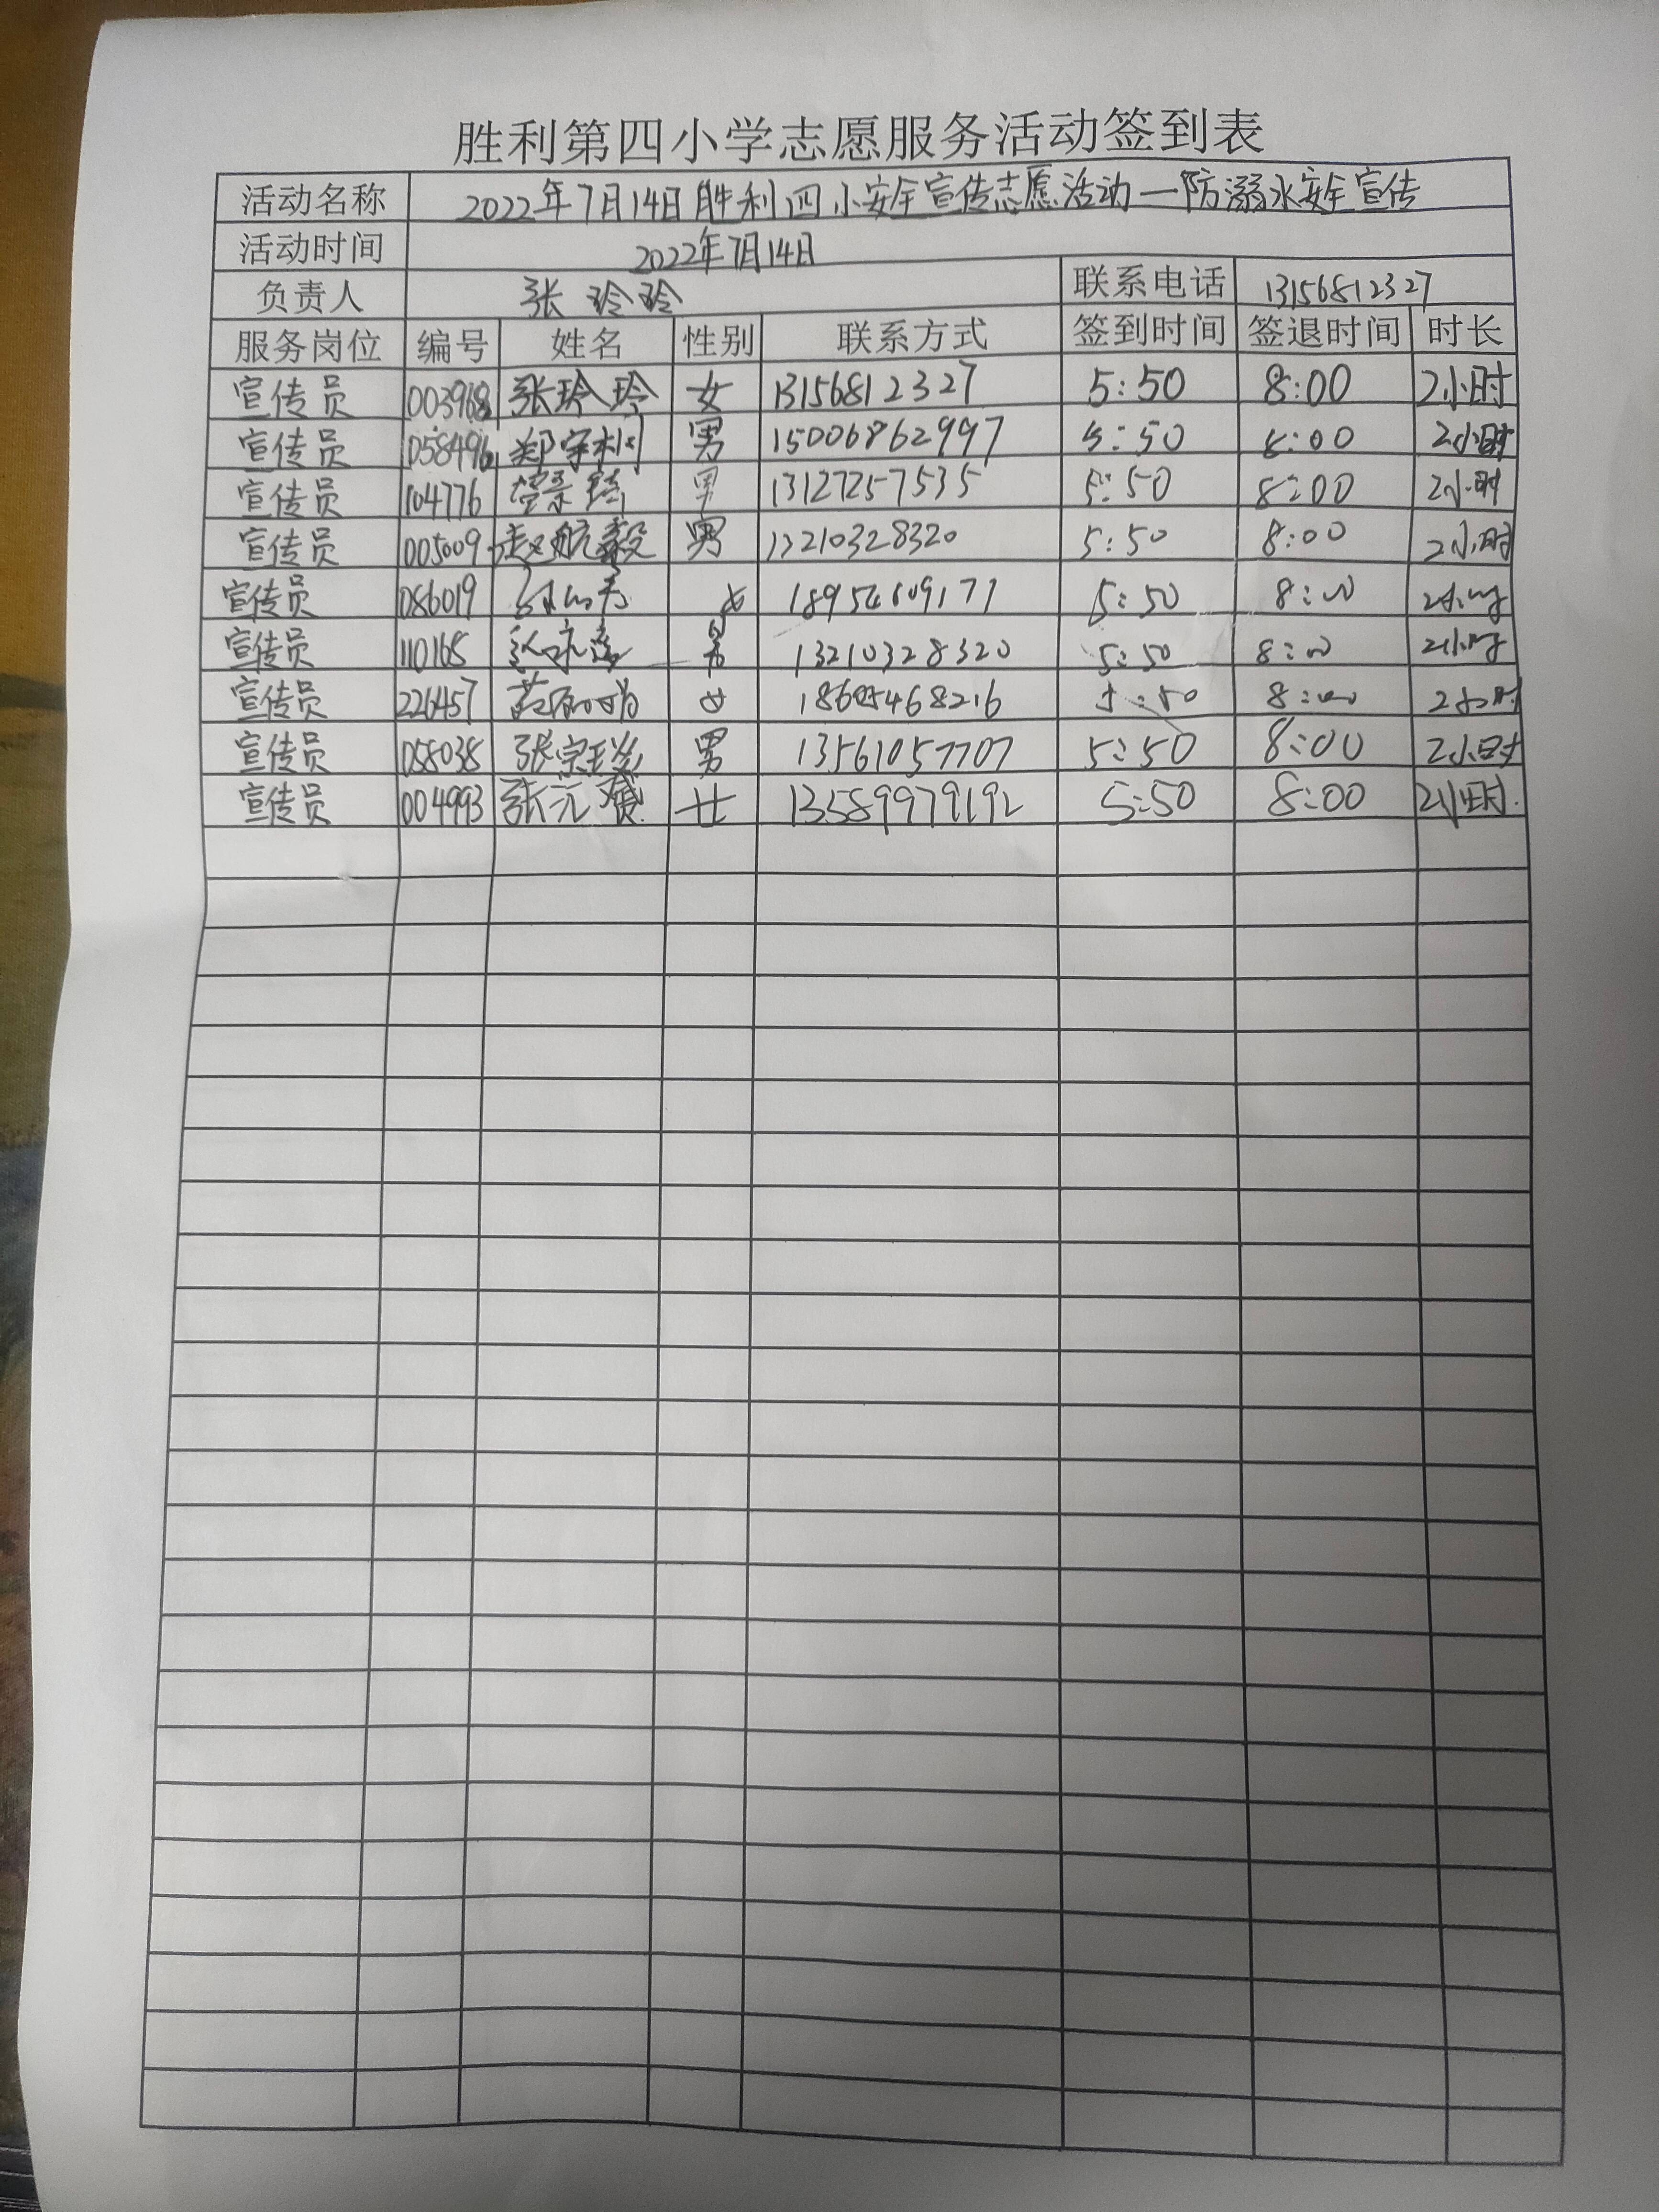 胜利第四小学志愿服务活动签到表
活动名称 2022年7月14日胜利四小安全宣传志愿活动—防溺水安全宣传
活动时间 2022年7月14日
负责人 张玲玲 联系电话 13156812327
服务岗位 编号 姓名 性别 联系方式 签到时间 签退时间 时长
宣传员 003968 张玲玲 女 13156812327 5:50 8:00 2小时
宣传员 058496 郑宇桐 男 15006862997 5:50 8:00 2小时
宣传员 104776 男 13127257535 5:50 8:00 2小时
宣传员 005009 赵航毅 男 13210328320 5:50 8:00 2小时
宣传员 086019 女 18954609177 5:50 8:00 2小时
宣传员 110165 男 13210328320 5:50 8:00 2小时
宣传员 226457 女 5:50 8:00 2小时
宣传员 058038 男 13561057707 5:50 8:00 2小时
宣传员 004993 张元赟 女 13589979192 5:50 8:00 2小时.